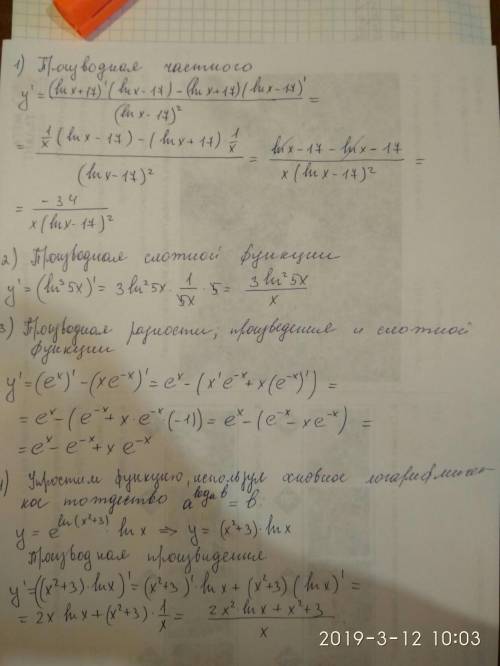 1) Производная частного
y' = ((ln x+17)' (ln x-17) - (ln x+17)(ln x-17)') / (ln x-17)² =
= (1/x (ln x-17) - (ln x+17) 1/x) / (ln x-17)² = (ln x-17-ln x-17) / (x(ln x-17)²) =
= -34 / (x(ln x-17)²)
2) Производная сложной функции
y' = (ln³5x)' = 3ln²5x · 1/5x · 5 = 3ln²5x / x
3) Производная разности, произведения и сложной
функции
y' = (eˣ)' - (xe⁻ˣ)' = eˣ - (x'e⁻ˣ + x(e⁻ˣ)') =
= eˣ - (e⁻ˣ + x·e⁻ˣ(-1)) = eˣ - (e⁻ˣ - xe⁻ˣ) =
= eˣ - e⁻ˣ + xe⁻ˣ
Упростим функцию, используя основное логарифмичес-
кое тождество a^(log_a b) = b
y = e^(ln(x²+3)) · ln x ⇒ y = (x²+3)·ln x
Производная произведения
y' = ((x²+3)·ln x)' = (x²+3)'·ln x + (x²+3)(ln x)' =
= 2x ln x + (x²+3)·1/x = (2x² ln x + x²+3) / x
2019-3-12 10:03